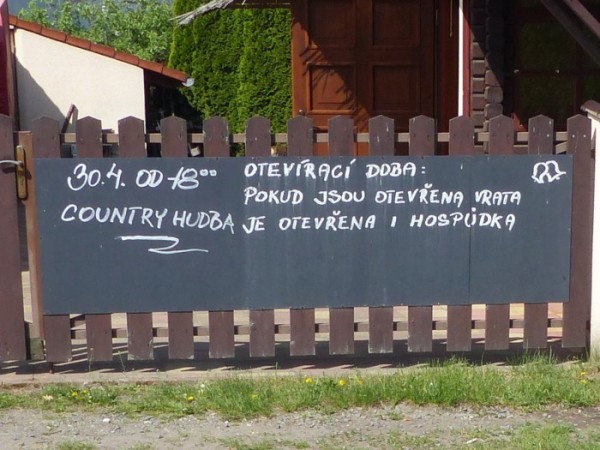 30.4. OD 18⁰⁰
COUNTRY HUDBA
OTEVÍRACÍ DOBA:
POKUD JSOU OTEVŘENA VRATA
JE OTEVŘENA I HOSPŮDKA